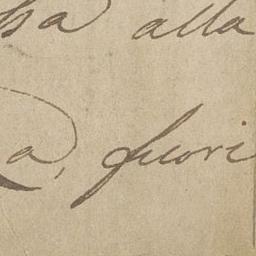 alla
a, fuori